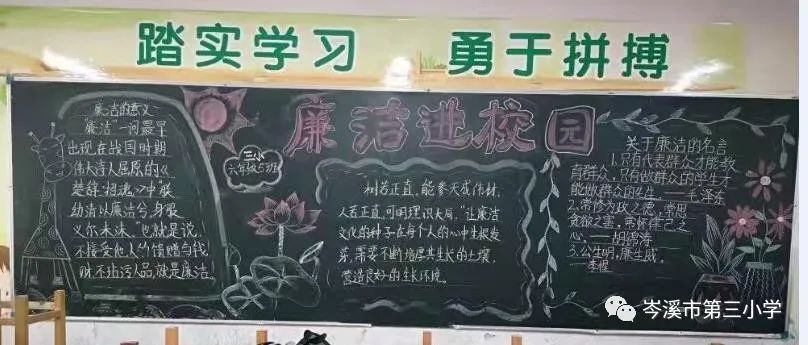 踏实学习 勇于拼搏
廉洁进校园
三小
六年级5班
廉洁的意义
"廉洁"一词最早
出现在战国时期
伟大诗人屈原的《
楚辞·招魂》中"朕
幼清以廉洁兮,身服
义尔未沫。"也就是说,
不接受他人的馈赠与钱
财,不玷污人品,就是廉洁。
树若正直,能参天成伟材,
人若正直,可明理识大局,"让廉洁
文化的种子在每个人的心中生根发
芽,需要不断培厚共生长的土壤,
营造良好的生长环境。
关于廉洁的名言
1.只有代表群众才能教
育群众,只有做群众的学生才
能做群众的先生——毛泽东
2.常修为政之德,常思
贪欲之害,常怀律己之
心——胡锦涛
3.公生明,廉生威。
岑溪市第三小学